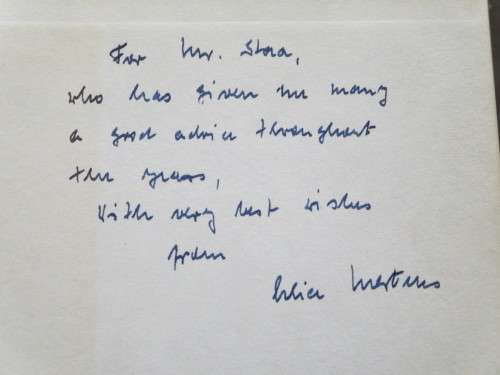 For Mr.
who has given me many
a good advice throughout
the years,
With very best wishes
from
Mertens